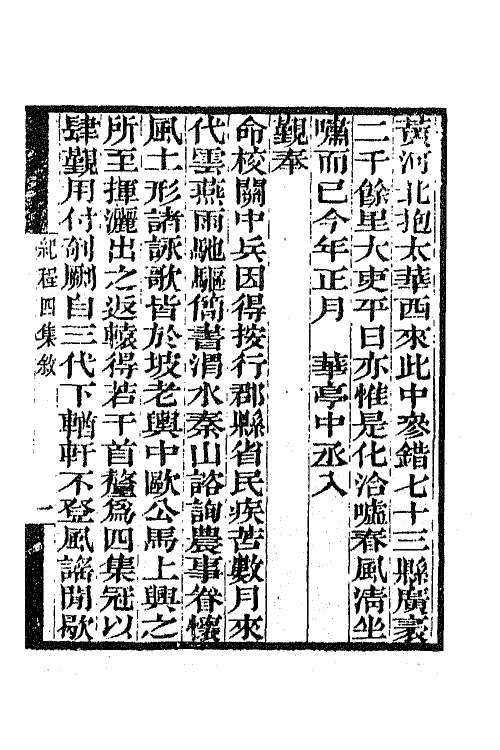 黃河北抱太華西來此中參錯七十三縣廣袤
二千餘里大吏平日亦惟是化洽噓春風淸坐
嘯而已今年正月　華亭中丞入
覲奉
命校關中兵因得按行郡縣省民疾苦數月來
代雲燕雨馳驅簡書渭水秦山諮詢農事眷懷
風土形諸詠歌皆於坡老輿中歐公馬上興之
所至揮灑出之返轅得若干首釐爲四集冠以
肆覲用付剞劂自三代下輶軒不登風謠閒歇
紀程四集敘　一